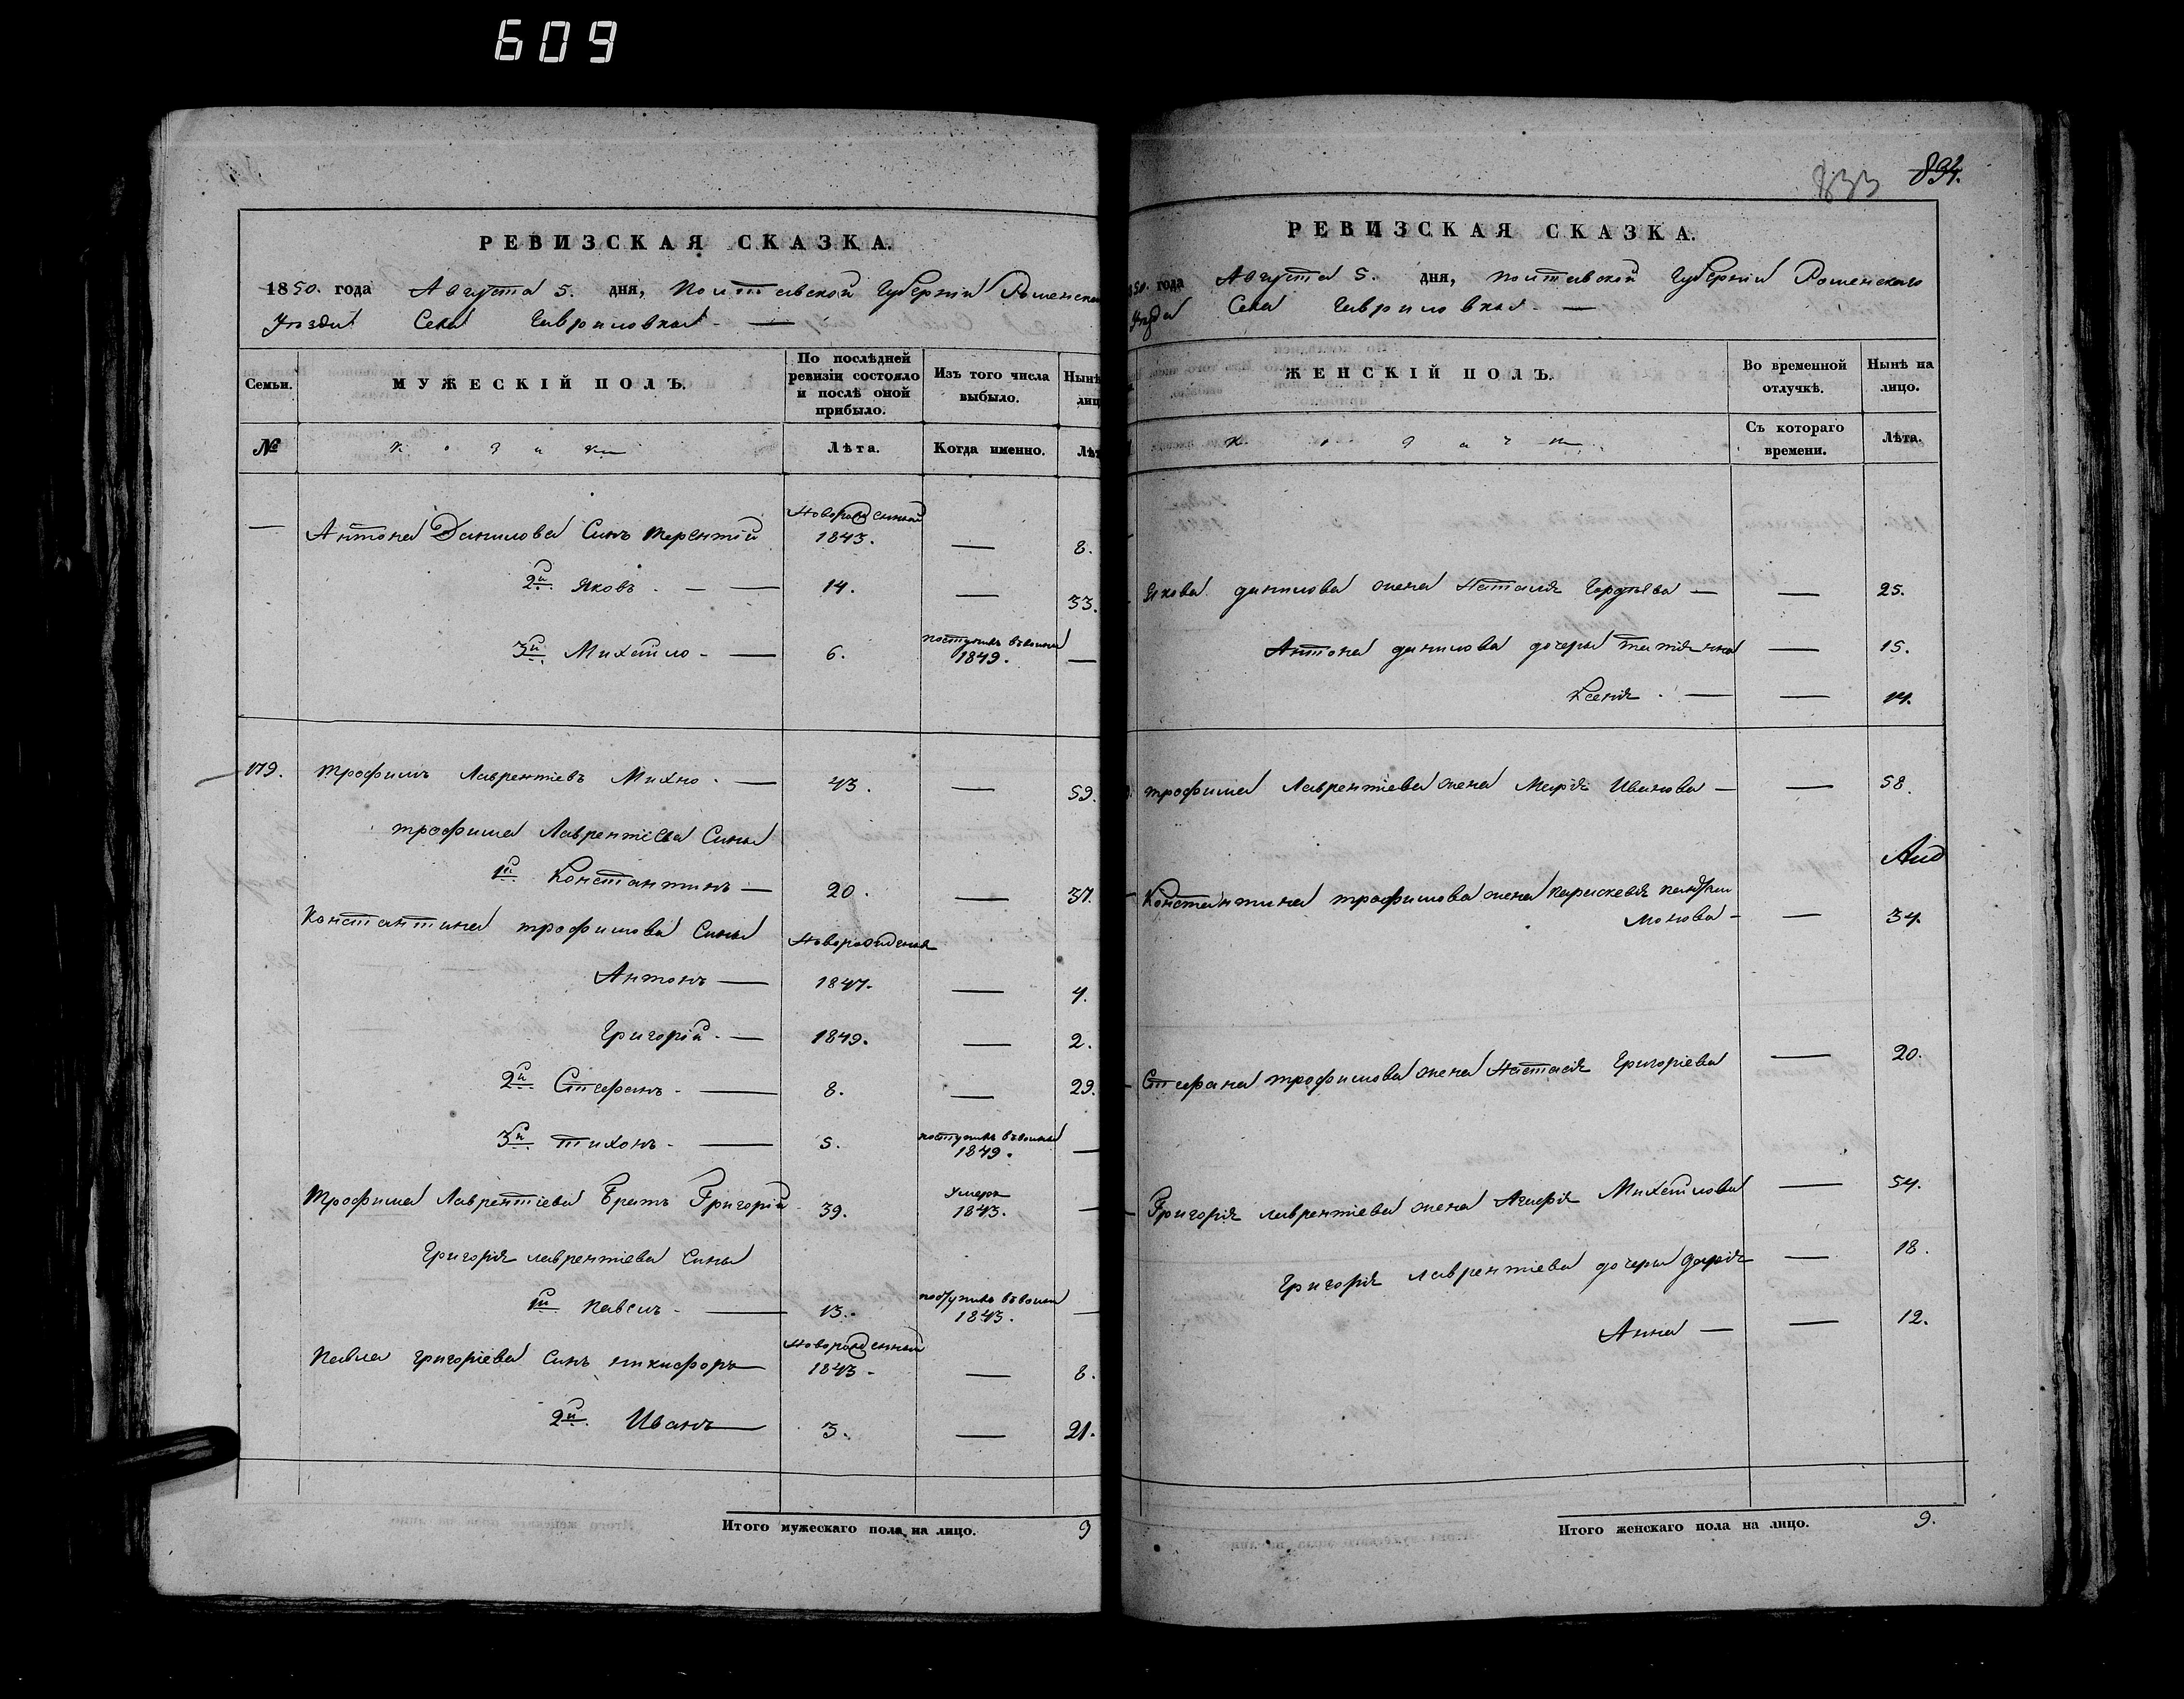 609
РЕВИЗСКАЯ СКАЗКА.
1850. года Августа 5. дня, Полтавской Губерніи Роменска
Уѣзда Села Гавриловки. —
Семьи. МУЖЕСКІЙ ПОЛЪ. По послѣдней ревизіи состояло и послѣ оной прибыло. Изъ того числа выбыло. Нынѣ лиц
№ Козаки Лѣта. Когда именно. Лѣт
— Антона Данилова Сынъ Терентій Новорожденный 1843. — 8.
2й Яковъ. — 14. — 33.
3й Михайло — 6. поступилъ въ военн 1849. —
179. Трофимъ Лаврентіевъ Михно. — 43. — 59.
Трофима Лаврентіева Сыны
1й Константинъ — 20. — 37.
Константина Трофимова Сыны Новорожденные
Антонъ — 1847. — 4.
Григорій. — 1849. — 2.
2й Стефанъ — 8. — 29.
3й Тихонъ — 5. поступилъ въ военн 1849. —
Трофима Лаврентіева Братъ Григорій 39. Умеръ 1843. —
Григорія Лаврентіева Сыны
1й Павелъ — 13. поступилъ въ военн 1843. —
Павла Григоріева Сынъ Никифоръ Новорожденный 1843. — 8.
2й Иванъ 3. — 21.
Итого мужескаго пола на лицо. 9
833 894.
РЕВИЗСКАЯ СКАЗКА.
850. года Августа 5. дня, Полтавской Губерніи Роменскаго
Уѣзда Села Гавриловки. —
ЖЕНСКІЙ ПОЛЪ. Во временной отлучкѣ. Нынѣ на лицо.
Козачки Съ котораго времени. Лѣта.
Якова Данилова жена Наталія Гордѣева — — 25.
Антона Данилова дочеры Татіянна — 15.
Ксенія. — — 14.
Трофима Лаврентіева жена Марія Иванова — — 58.
Константина Трофимова жена Параскевія Панфи
монова — — 34.
Стефана Трофимова жена Настасія Григоріева — 20.
Григорія Лаврентіева жена Агафія Михайлова — 54.
Григорія Лаврентіева дочеры Дарія — 18.
Анна — — 12.
Итого женскаго пола на лицо. 9.